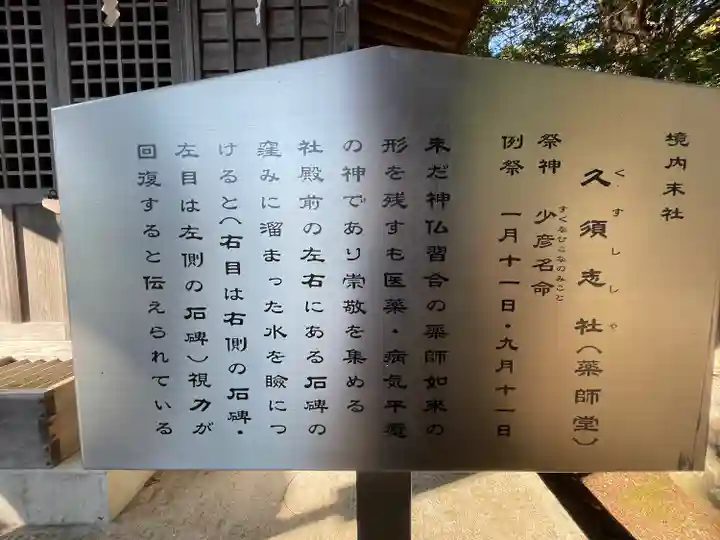 境内末社
久須志社(薬師堂)
くすししや
祭神 少彦名命
すくなひこなのみこと
例祭 一月十一日・九月十一日
未だ神仏習合の薬師如来の
形を残すも医薬・病気平癒
の神であり崇敬を集める
社殿前の左右にある石碑の
窪みに溜まった水を瞼につ
けると(右目は右側の石碑・
左目は左側の石碑)視力が
回復すると伝えられている